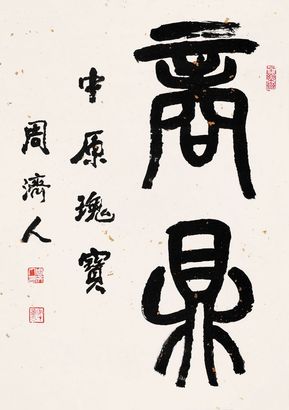 商鼎
中原瑰寶
周濟人